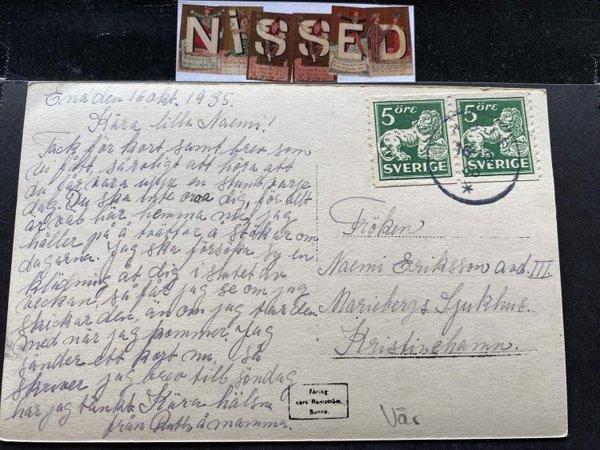 NISSED
Ena den 16 okt. 1935.
Kära lilla Naemi!
Tack för kort samt brev som
vi fått, så roligt att höra att
du får vara uppe en stund varje
dag. Du ska inte oroa dig, för allt
är väl här hemma nu, jag
håller på å tvättar å stökar om
dagarna. Jag ska försöka sy en
klädning åt dig i slutet av
veckan, så får jag se om jag
skickar den, än om jag tar den
med när jag kommer. Jag
sänder ett kort nu, så
skriver jag brev till söndag
har jag tänkt. Kära hälsn
från Ruth å mamma.
5 ÖRE
SVERIGE
5 ÖRE
SVERIGE
Fröken
Naemi Eriksson avd. III.
Mariebergs Sjukhus.
Kristinehamn.
Förlag
Lars Ramström,
Sunne.